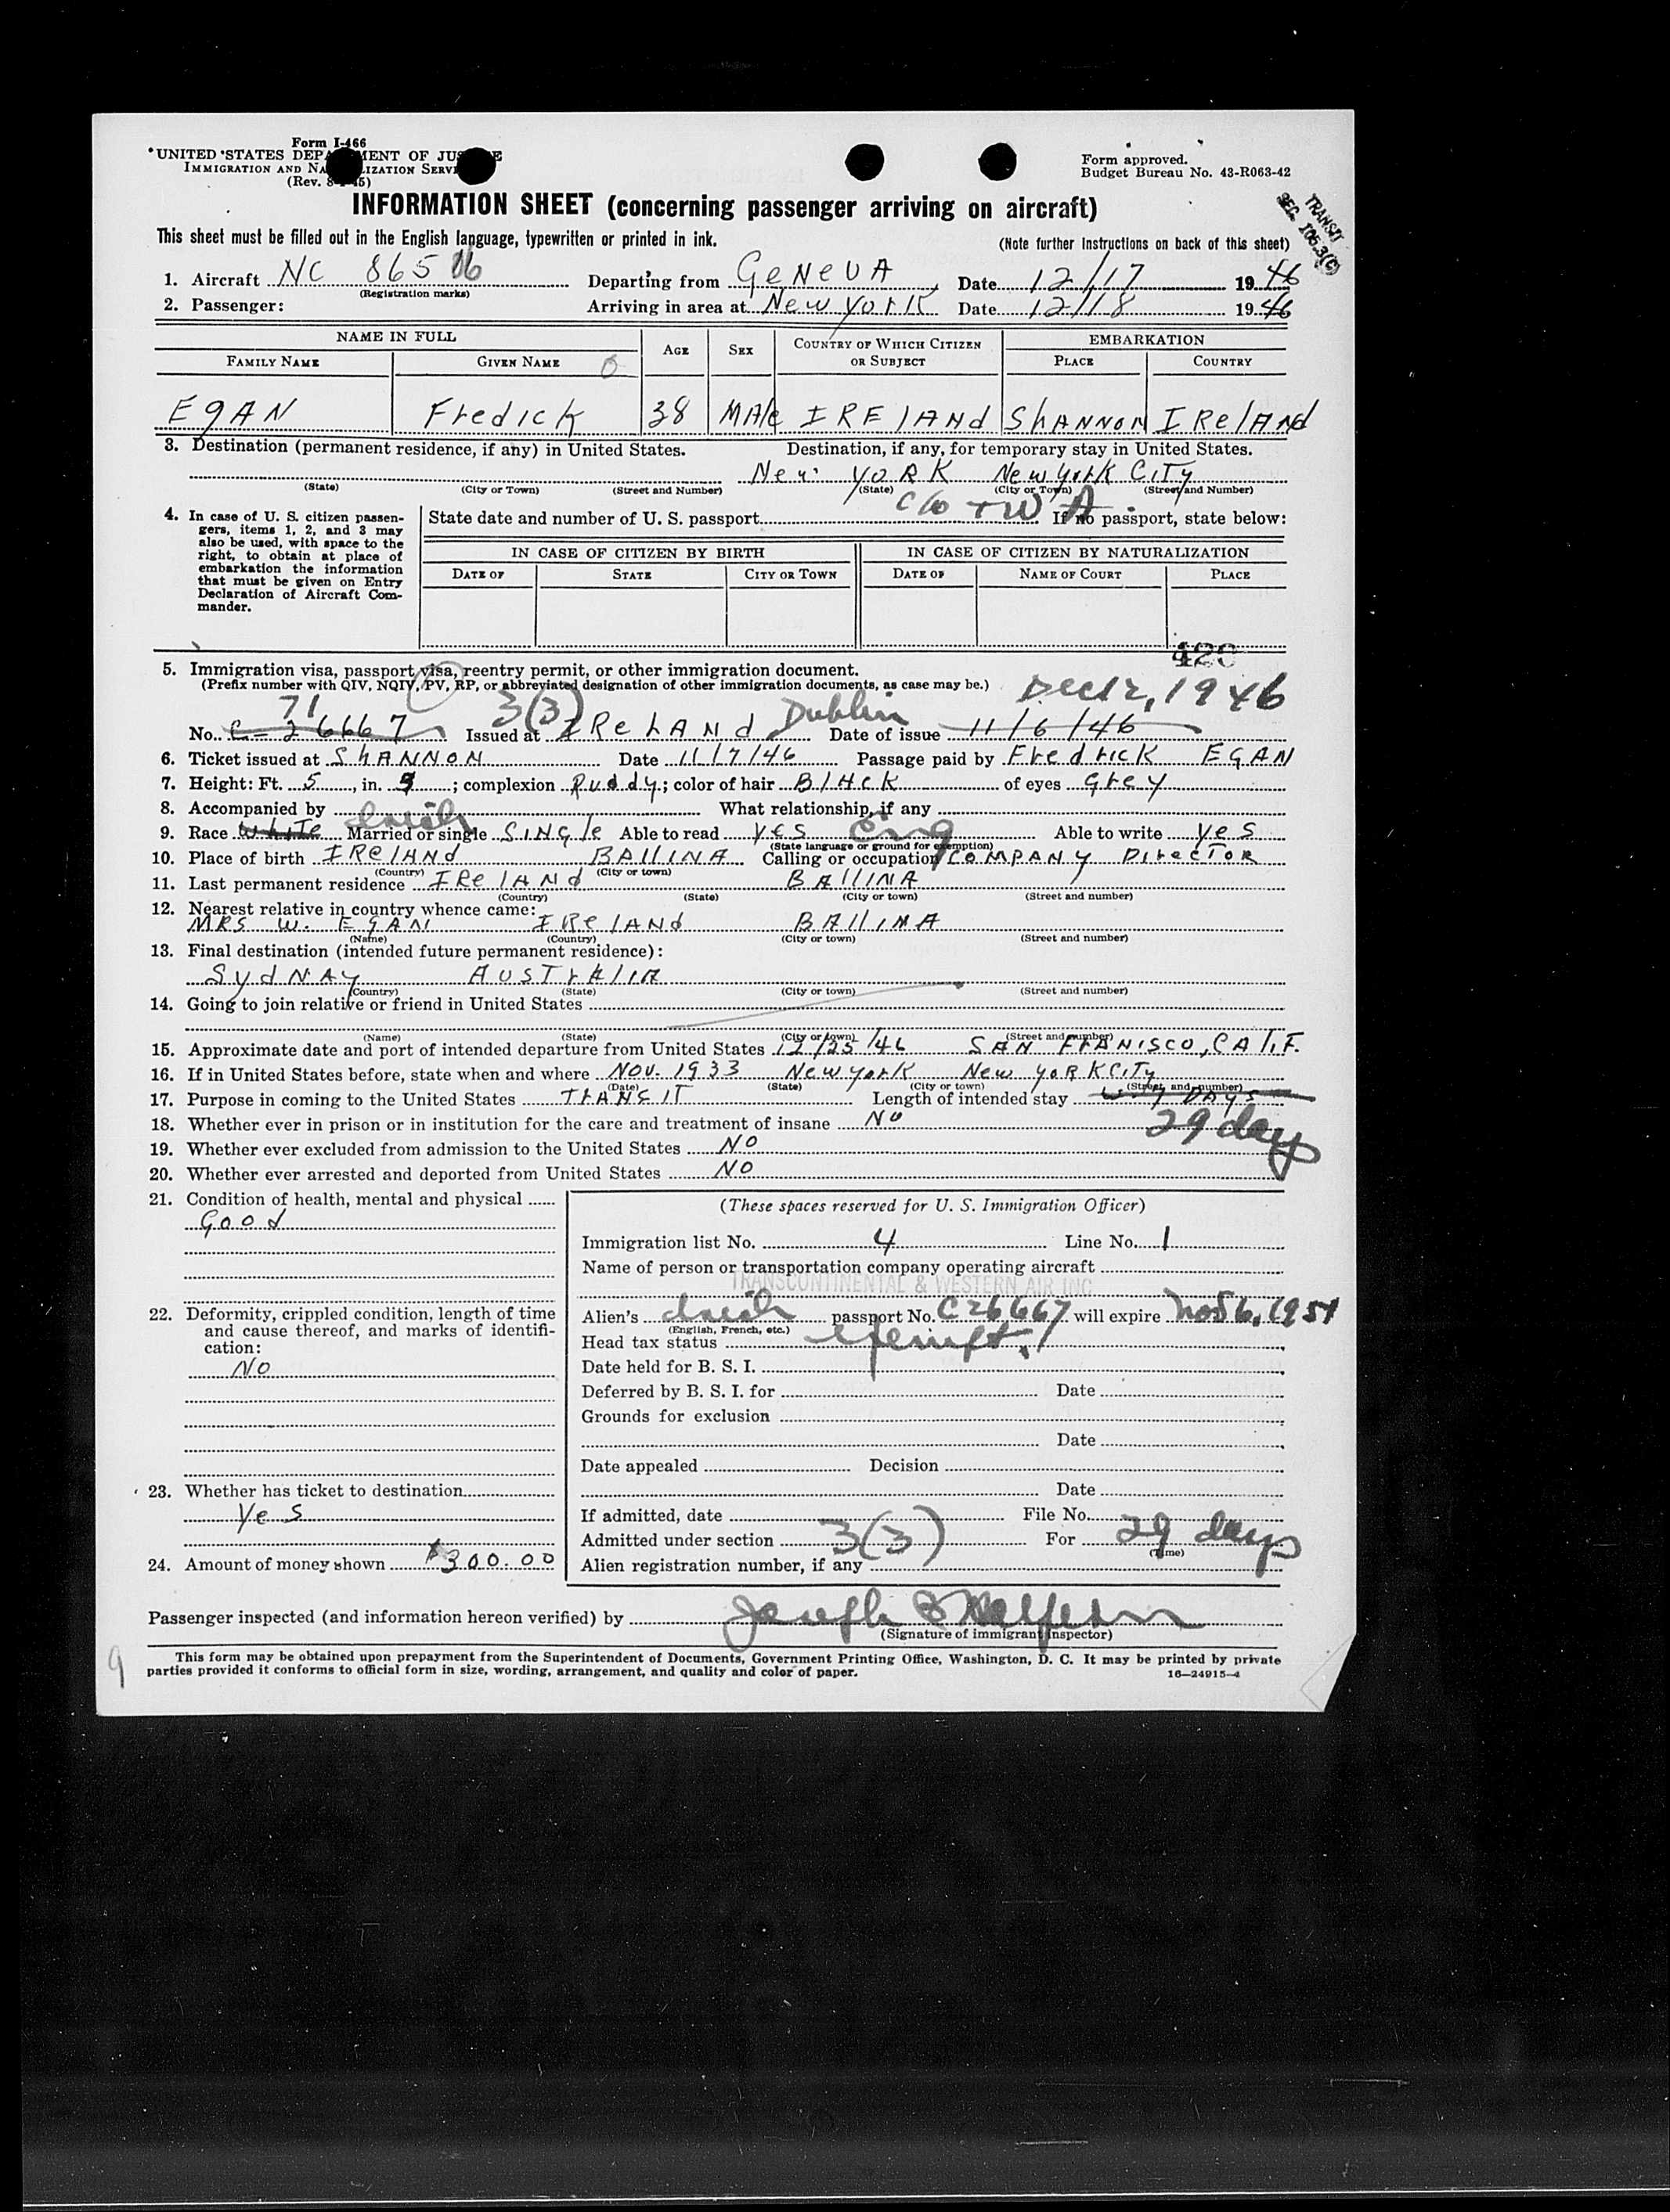 Form I-466
UNITED STATES DEPA MENT OF JUS E
IMMIGRATION AND NA LIZATION SERVI
(Rev. 8- -45)
Form approved.
Budget Bureau No. 43-R063-42
TRANSIT
SEC. 105.3(C)
INFORMATION SHEET (concerning passenger arriving on aircraft)
This sheet must be filled out in the English language, typewritten or printed in ink. (Note further instructions on back of this sheet)
1. Aircraft NC 86516 Departing from GeNeVA, Date 12/17 1946
(Registration marks)
2. Passenger: Arriving in area at New York Date 12/18 1946
NAME IN FULL AGE SEX COUNTRY OF WHICH CITIZEN OR SUBJECT EMBARKATION
FAMILY NAME GIVEN NAME PLACE COUNTRY
EgAN Fredick 38 MAle IRElANd ShANNON IRelANd
3. Destination (permanent residence, if any) in United States. Destination, if any, for temporary stay in United States.
New YORK New York CITy
(State) (City or Town) (Street and Number) (State) (City or Town) (Street and Number)
c/o TWA
4. In case of U. S. citizen passen-
gers, items 1, 2, and 3 may
also be used, with space to the
right, to obtain at place of
embarkation the information
that must be given on Entry
Declaration of Aircraft Com-
mander.
State date and number of U. S. passport If no passport, state below:
IN CASE OF CITIZEN BY BIRTH IN CASE OF CITIZEN BY NATURALIZATION
DATE OF STATE CITY OR TOWN DATE OF NAME OF COURT PLACE
420
5. Immigration visa, passport visa, reentry permit, or other immigration document.
(Prefix number with QIV, NQIV, PV, RP, or abbreviated designation of other immigration documents, as case may be.) Dec 12, 1946
71 3(3) Dublin
No. C-26667 Issued at IReLANd Date of issue 11/6/46
6. Ticket issued at ShANNON Date 11/7/46 Passage paid by Fredrick EGAN
7. Height: Ft. 5, in. 9; complexion Ruddy; color of hair BlAcK of eyes Grey
8. Accompanied by What relationship, if any
Irish
9. Race WhITe Married or single SINGle Able to read YES Eng Able to write yes
(State language or ground for exemption)
10. Place of birth IRelANd BAllINA Calling or occupation COMPANY DIrecTOR
(Country) (City or town)
11. Last permanent residence IRelANd BAllINA
(Country) (State) (City or town) (Street and number)
12. Nearest relative in country whence came:
MRS W. EGAN IRelANd BAllINA
(Name) (Country) (City or town) (Street and number)
13. Final destination (intended future permanent residence):
SydNAy AUSTrAlIA
(Country) (State) (City or town) (Street and number)
14. Going to join relative or friend in United States
(Name) (State) (City or town) (Street and number)
15. Approximate date and port of intended departure from United States 12/25/46 SAN FrANISCO, CAlIF.
16. If in United States before, state when and where NOV. 1933 New york New YORK CITy
(Date) (State) (City or town) (Street and number)
17. Purpose in coming to the United States TrANSIT Length of intended stay DAyS
29 days
18. Whether ever in prison or in institution for the care and treatment of insane NO
19. Whether ever excluded from admission to the United States NO
20. Whether ever arrested and deported from United States NO
21. Condition of health, mental and physical
Good
22. Deformity, crippled condition, length of time
and cause thereof, and marks of identifi-
cation:
NO
23. Whether has ticket to destination
yes
24. Amount of money shown $300.00
(These spaces reserved for U. S. Immigration Officer)
Immigration list No. 4 Line No. 1
Name of person or transportation company operating aircraft
TRANSCONTINENTAL & WESTERN AIR INC
Alien's Irish passport No. C26667 will expire Nov 6, 1951
(English, French, etc.)
Head tax status exempt.
Date held for B. S. I.
Deferred by B. S. I. for Date
Grounds for exclusion
Date
Date appealed Decision
Date
If admitted, date File No.
Admitted under section 3(3) For 29 days
(Time)
Alien registration number, if any
Passenger inspected (and information hereon verified) by Joseph
(Signature of immigrant inspector)
This form may be obtained upon prepayment from the Superintendent of Documents, Government Printing Office, Washington, D. C. It may be printed by private
parties provided it conforms to official form in size, wording, arrangement, and quality and color of paper. 16—24915-4
9